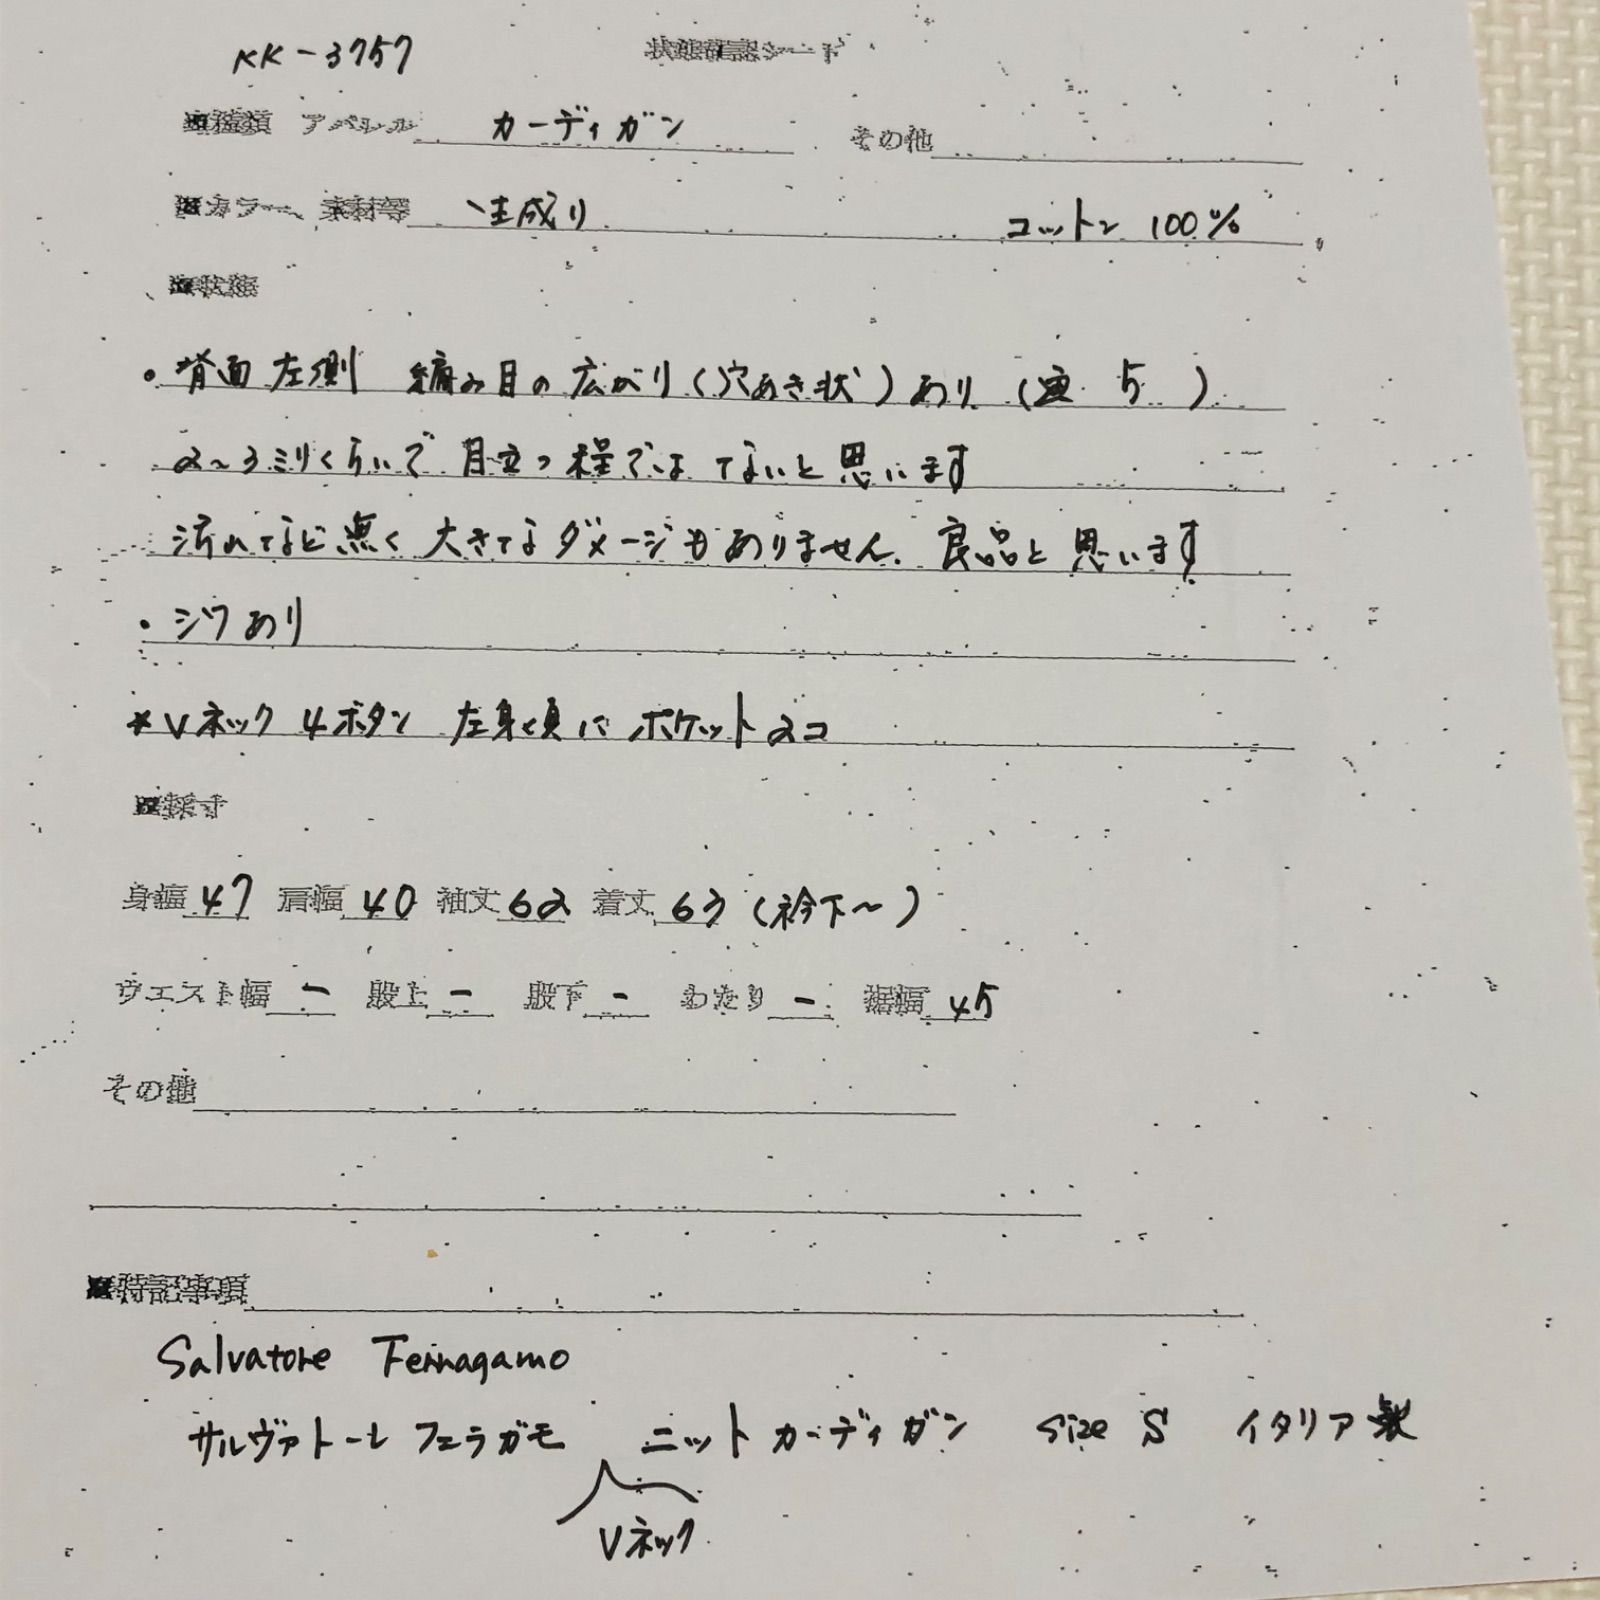 KK-3757 状態確認シート
■種類 アパレル カーディガン その他
■カラー、素材等 生成り コットン 100%
■状態
・背面 左側 編み目の広がり(穴あき状)あり (画 5 )
2～3ミリくらいで 目立つ程では ないと思います
汚れなど無く 大きなダメージもありません。良品と思います
・シワあり
*Vネック 4ボタン 左身頃に ポケット2コ
■採寸
身幅 47 肩幅 40 袖丈 62 着丈 63 (衿下～)
ウエスト幅 － 股上 － 股下 － わたり － 裾幅 45
その他
■特記事項
Salvatore Ferragamo
サルヴァトーレ フェラガモ ニットカーディガン size S イタリア製
Vネック